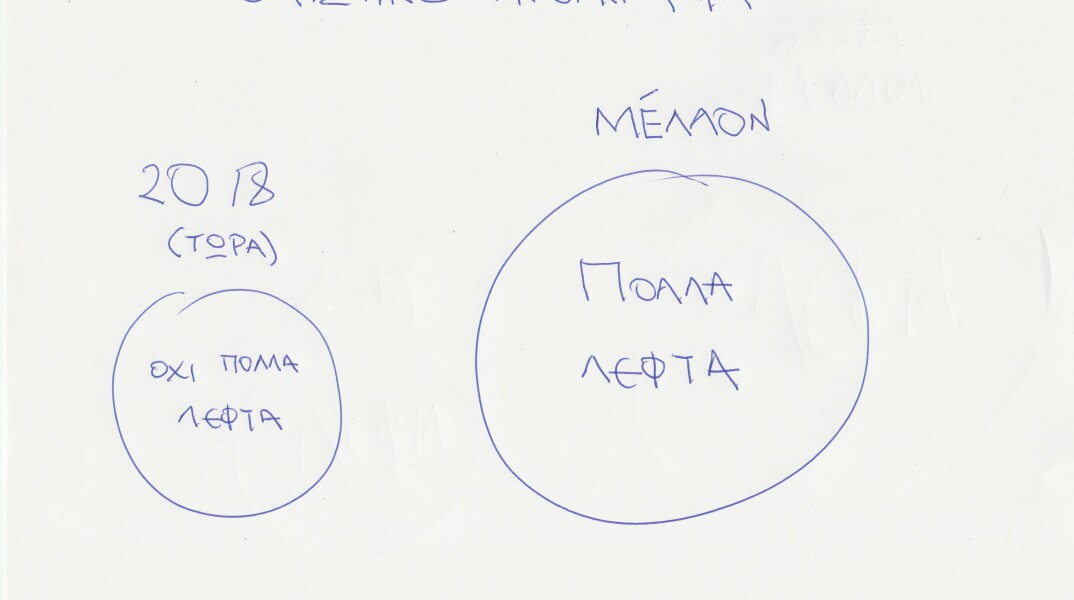 2018
(ΤΩΡΑ)
ΟΧΙ ΠΟΛΛΑ
ΛΕΦΤΑ
ΜΈΛΛΟΝ
ΠΟΛΛΑ
ΛΕΦΤΑ